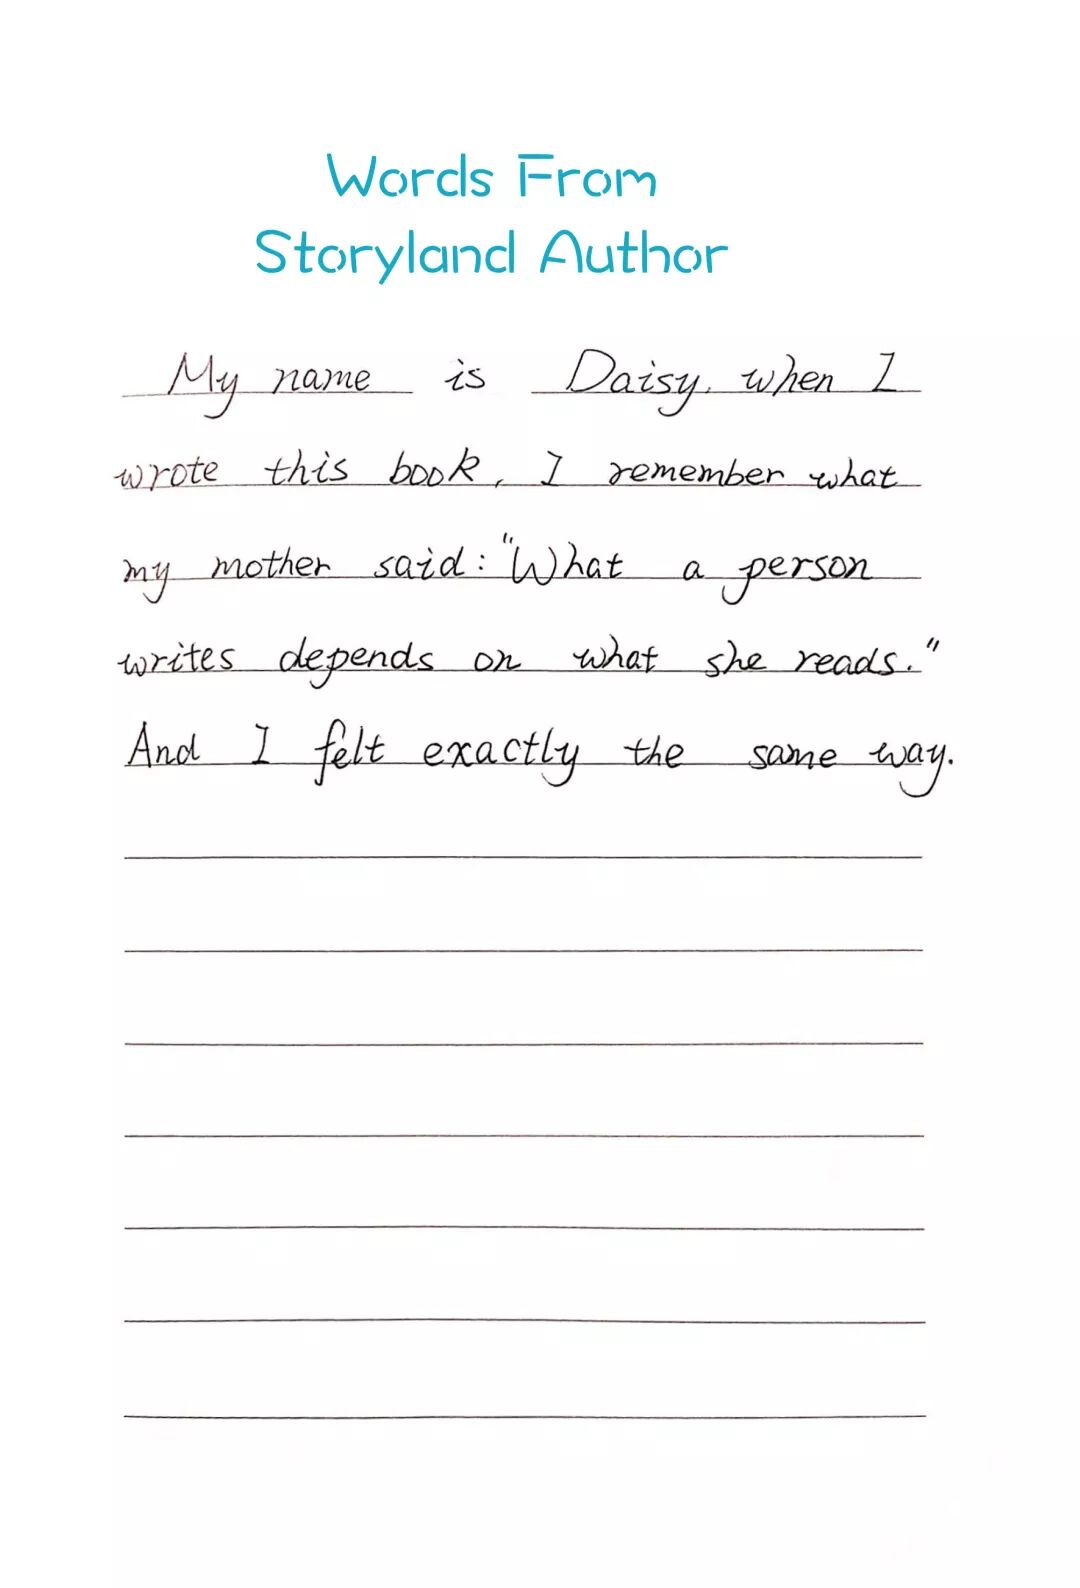 Words From
Storyland Author
My name is Daisy, when I
wrote this book, I remember what
my mother said: "What a person
writes depends on what she reads."
And I felt exactly the same way.